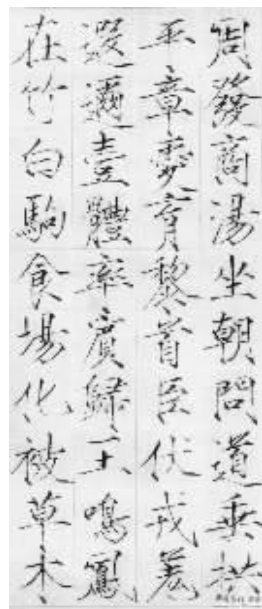 周發商湯坐朝問道垂拱
平章愛育黎首臣伏戎羌
遐邇壹體率賓歸王鳴鳳
在竹白駒食場化被草木